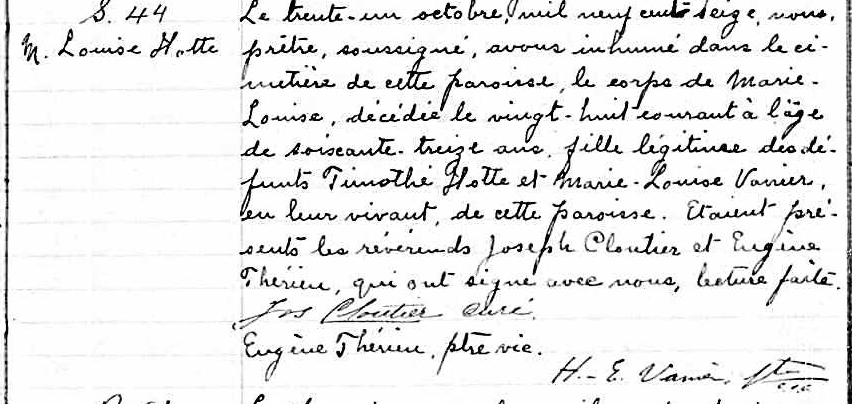 S. 44
M. Louise Hotte
Le trente-un octobre, mil neuf cent seize, nous,
prêtre, soussigné, avons inhumé dans le ci-
metière de cette paroisse, le corps de Marie-
Louise, décédée le vingt-huit courant à l'âge
de soixante-treize ans, fille légitime des dé-
funts Timothé Hotte et Marie-Louise Vanier,
en leur vivant, de cette paroisse. Etaient pré-
sents les révérends Joseph Cloutier et Eugène
Thérien, qui ont signé avec nous, lecture faite.
Jos Cloutier curé.
Eugène Thérien, ptre vic.
H.-E. Vanier, ptre